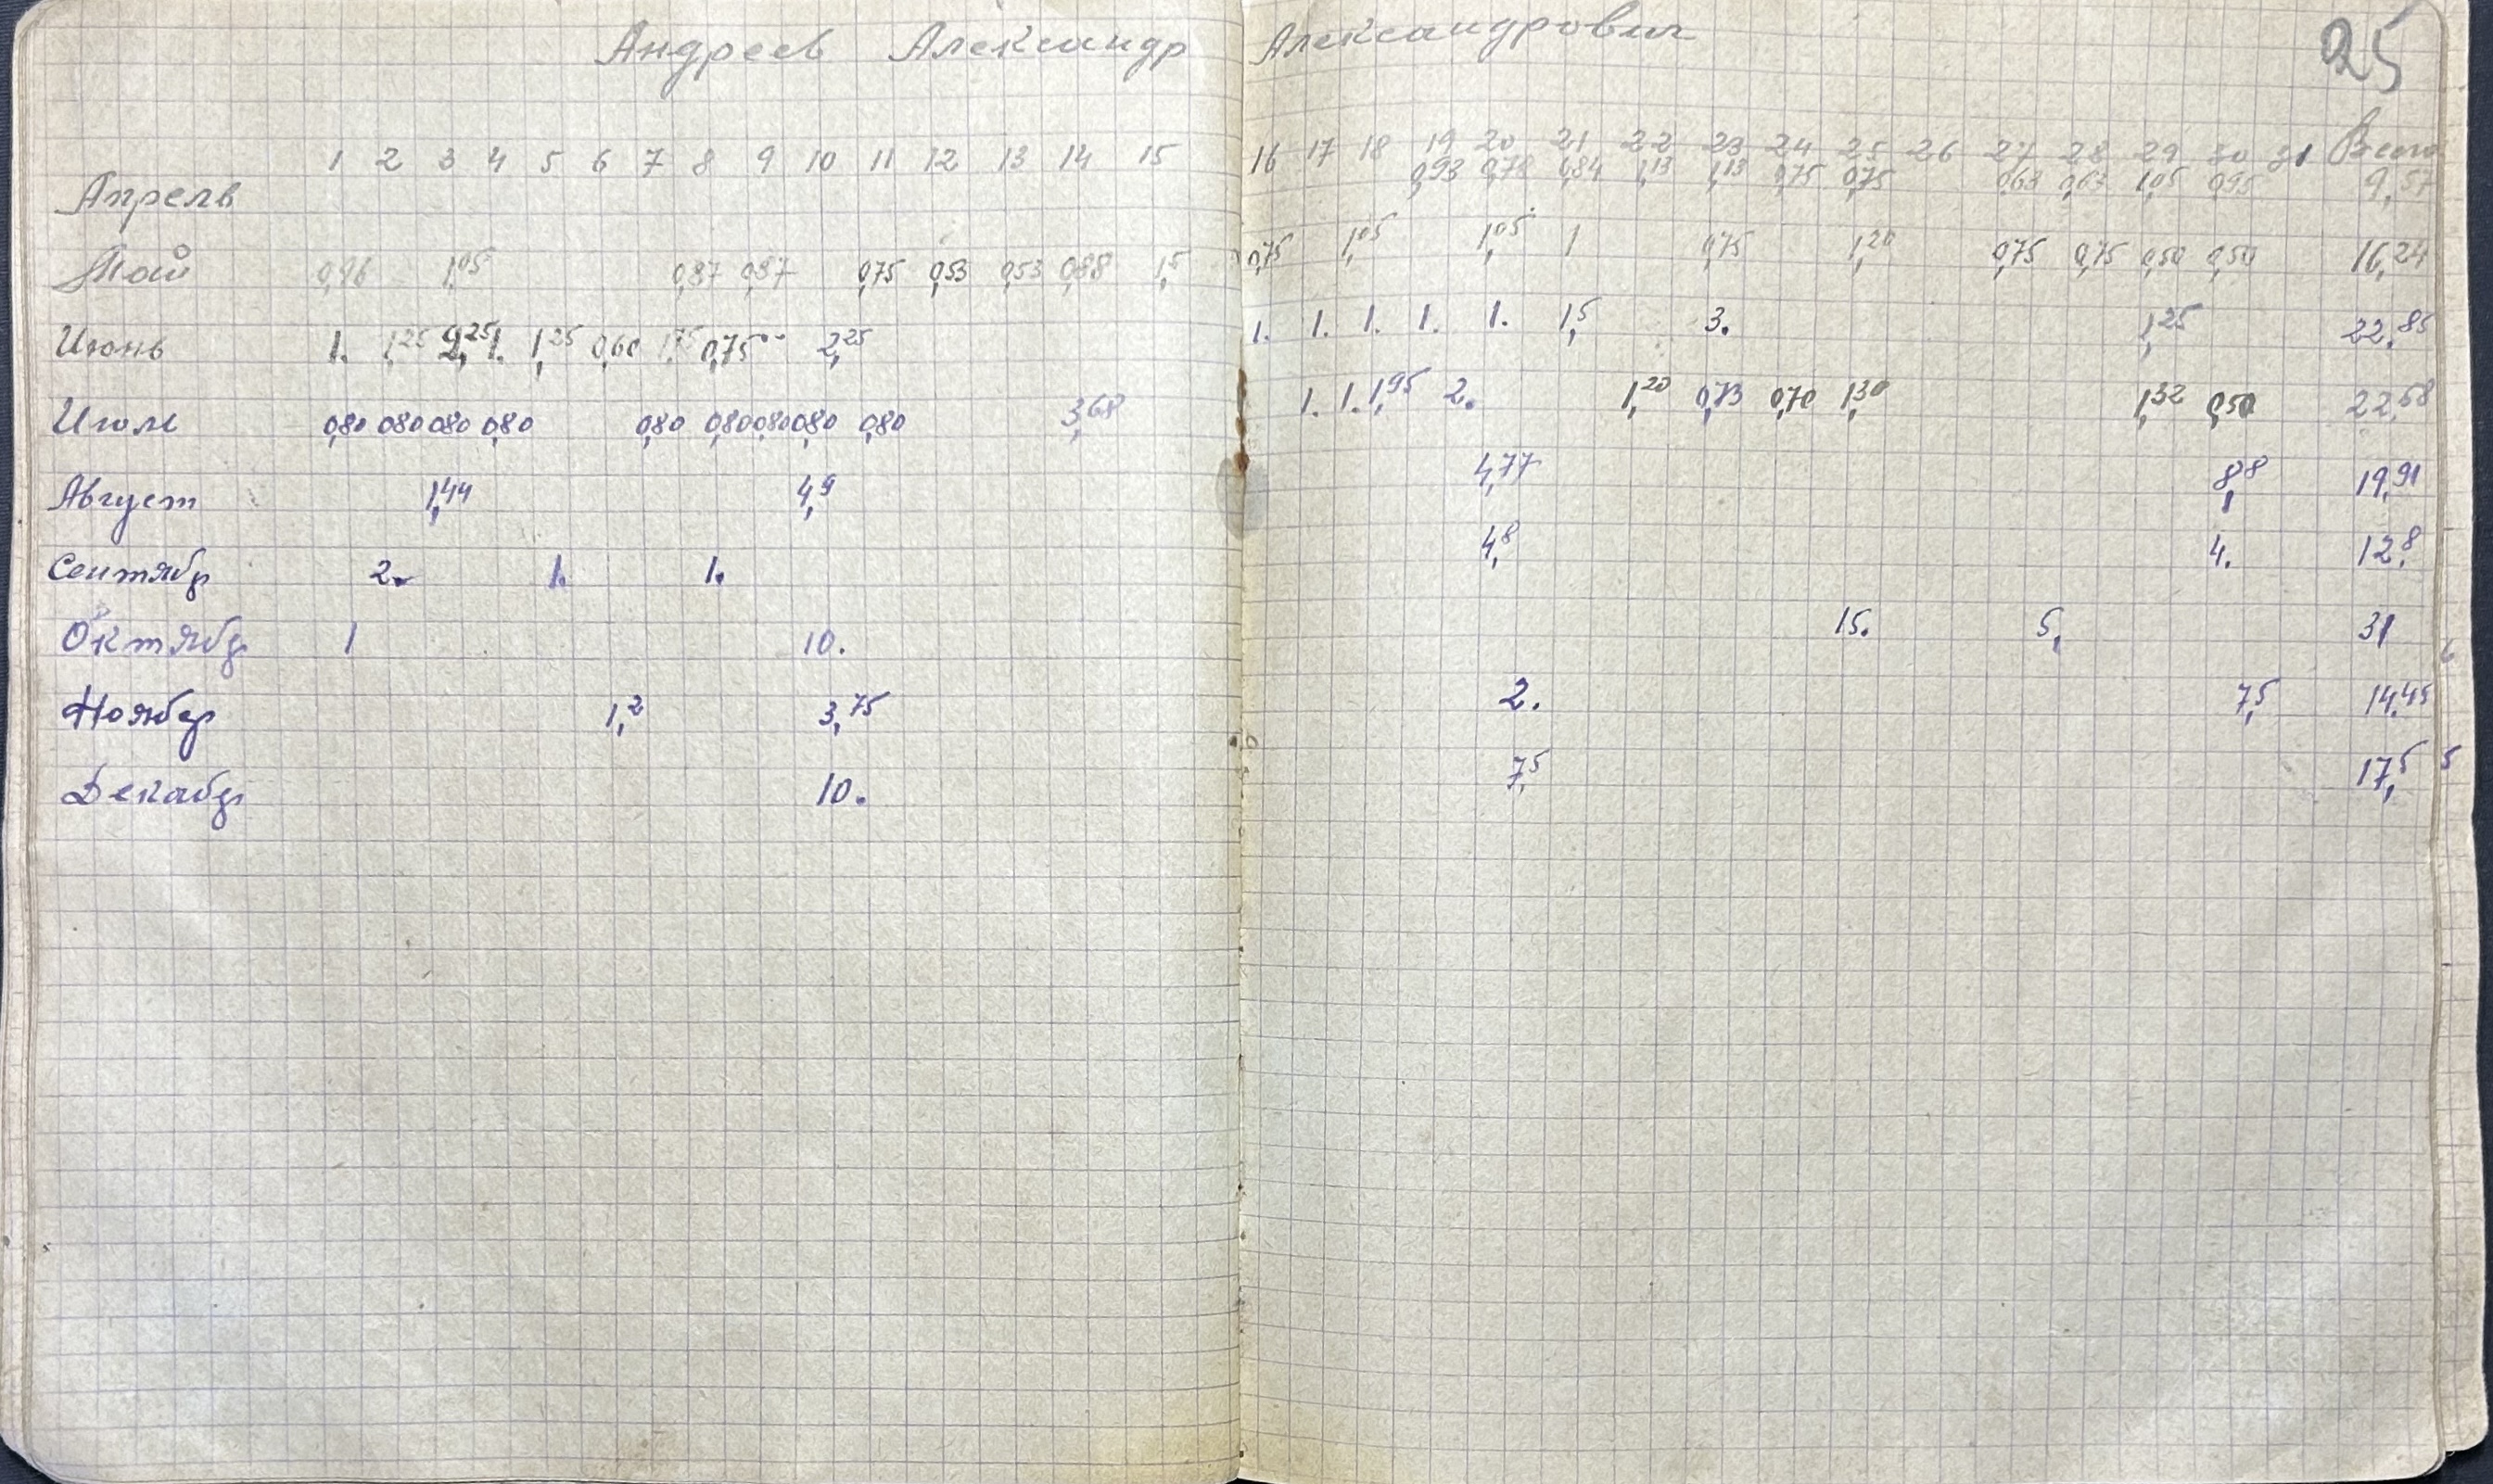 Андреев Александр Александрович 25
1 2 3 4 5 6 7 8 9 10 11 12 13 14 15 16 17 18 19 20 21 22 23 24 25 26 27 28 29 30 31 Всего
Апрель 0,93 0,78 0,84 1,13 1,13 0,75 0,75 0,63 0,63 1,05 0,95 9,57
Май 0,96 1,05 0,87 0,87 0,75 0,53 0,53 0,88 1,5 0,75 1,05 1,05 1 0,75 1,20 0,75 0,75 0,50 0,50 16,24
Июнь 1. 1,25 2,25 1. 1,25 0,60 1,75 0,75 2,25 1. 1. 1. 1. 1. 1,5 3. 1,25 22,85
Июль 0,80 0,80 0,80 0,80 0,80 0,80 0,80 0,80 0,80 3,68 1. 1. 1,95 2. 1,20 0,73 0,70 1,30 1,32 0,50 22,68
Август 1,44 4,9 4,77 8,8 19,91
Сентябр 2. 1. 1. 4,8 4. 12,8
Октябр 1 10. 15. 5, 31
Ноябр 1,2 3,75 2. 7,5 14,45
Декабр 10. 7,5 17,5